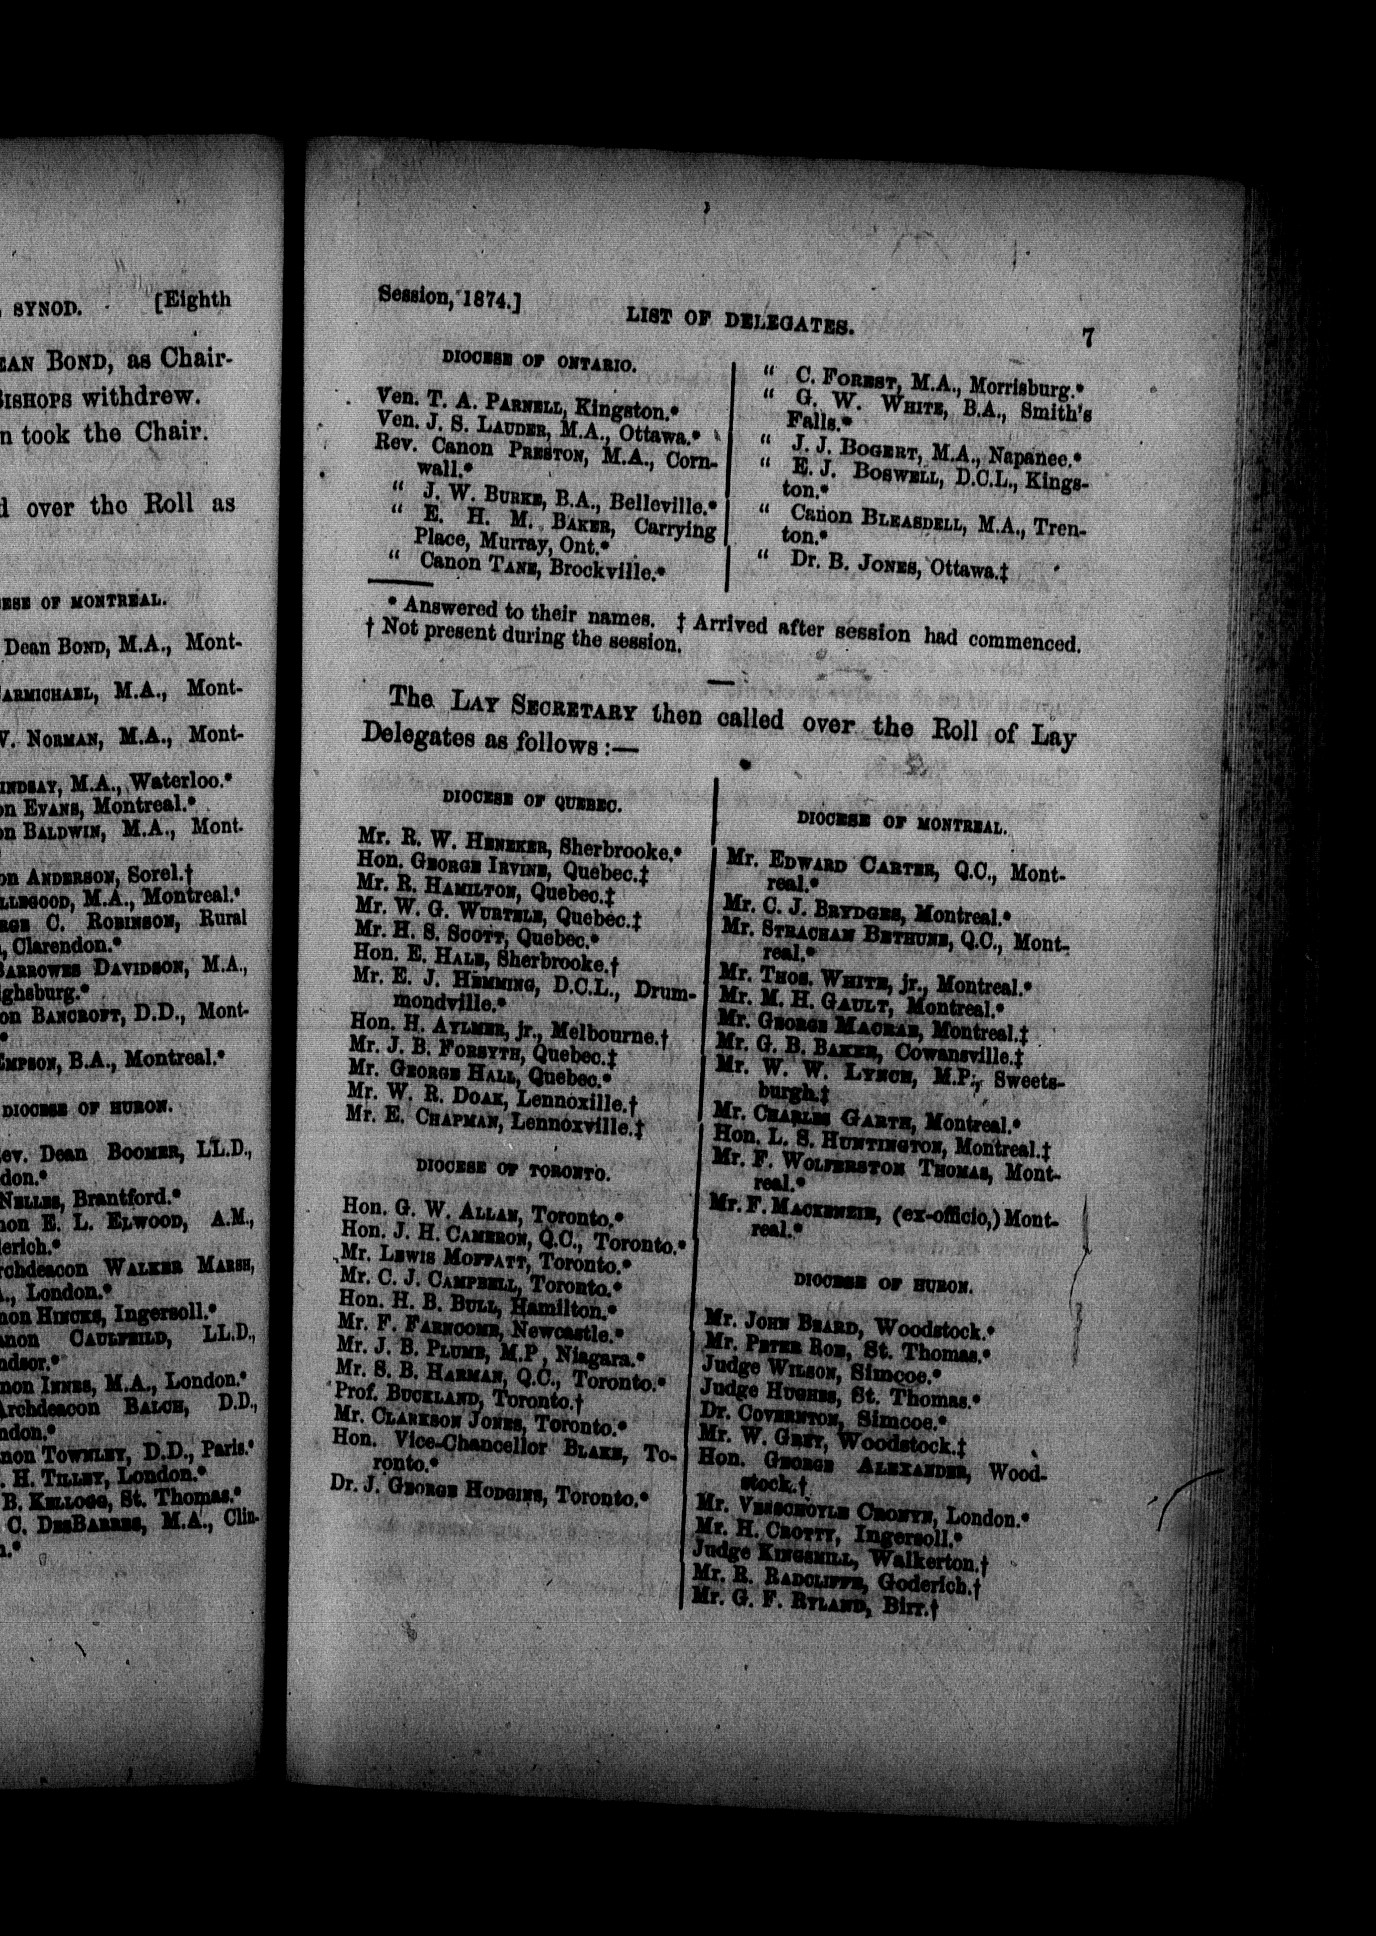 SYNOD. [Eighth
EAN BOND, as Chair-
BISHOPS withdrew.
n took the Chair.
d over the Roll as
ESE OF MONTREAL.
Dean BOND, M.A., Mont-
ARMICHAEL, M.A., Mont-
W. NORMAN, M.A., Mont-
INDSAY, M.A., Waterloo.*
on EVANS, Montreal.*
on BALDWIN, M.A., Mont-
on ANDERSON, Sorel.†
LLEGOOD, M.A., Montreal.*
RGE C. ROBINSON, Rural
, Clarendon.*
BARROWES DAVIDSON, M.A.,
ighsburg.*
on BANCROFT, D.D., Mont-
*
EMPSON, B.A., Montreal.*
DIOCESE OF HURON.
ev. Dean BOOMER, LL.D.,
don.*
NELLES, Brantford.*
non E. L. ELWOOD, A.M.,
erich.*
rchdeacon WALKER MARSH,
., London.*
non HINCKS, Ingersoll.*
anon CAULFEILD, LL.D.,
ndsor.*
non INNES, M.A., London.*
Archdeacon BALCH, D.D.,
ndon.*
non TOWNLEY, D.D., Paris.*
. H. TILLEY, London.*
B. KELLOGG, St. Thomas.*
C. DESBARRES, M.A., Clin-
n.*
Session, 1874.] LIST OF DELEGATES. 7
DIOCESE OF ONTARIO.
Ven. T. A. PARNELL, Kingston.*
Ven. J. S. LAUDER, M.A., Ottawa.*
Rev. Canon PRESTON, M.A., Corn-
wall.*
" J. W. BURKE, B.A., Belleville.*
" E. H. M. BAKER, Carrying
Place, Murray, Ont.*
" Canon TANE, Brockville.*
" C. FOREST, M.A., Morrisburg.*
" G. W. WHITE, B.A., Smith's
Falls.*
" J. J. BOGERT, M.A., Napanee.*
" E. J. BOSWELL, D.C.L., Kings-
ton.*
" Canon BLEASDELL, M.A., Tren-
ton.*
" Dr. B. JONES, Ottawa.‡
* Answered to their names. ‡ Arrived after session had commenced.
† Not present during the session.
The LAY SECRETARY then called over the Roll of Lay
Delegates as follows:—
DIOCESE OF QUEBEC.
Mr. R. W. HENEKER, Sherbrooke.*
Hon. GEORGE IRVINE, Quebec.‡
Mr. R. HAMILTON, Quebec.‡
Mr. W. G. WURTELE, Quebec.‡
Mr. H. S. SCOTT, Quebec.*
Hon. E. HALE, Sherbrooke.†
Mr. E. J. HEMMING, D.C.L., Drum-
mondville.*
Hon. H. AYLMER, jr., Melbourne.†
Mr. J. B. FORSYTH, Quebec.‡
Mr. GEORGE HALL, Quebec.*
Mr. W. R. DOAK, Lennoxille.†
Mr. E. CHAPMAN, Lennoxville.‡
DIOCESE OF TORONTO.
Hon. G. W. ALLAN, Toronto.*
Hon. J. H. CAMERON, Q.C., Toronto.*
Mr. LEWIS MOFFATT, Toronto.*
Mr. C. J. CAMPBELL, Toronto.*
Hon. H. B. BULL, Hamilton.*
Mr. F. FARNCOMB, Newcastle.*
Mr. J. B. PLUMB, M.P, Niagara.*
Mr. S. B. HARMAN, Q.C., Toronto.*
Prof. BUCKLAND, Toronto.†
Mr. CLARKSON JONES, Toronto.*
Hon. Vice-Chancellor BLAKE, To-
ronto.*
Dr. J. GEORGE HODGINS, Toronto.*
DIOCESE OF MONTREAL.
Mr. EDWARD CARTER, Q.C., Mont-
real.*
Mr. C. J. BRYDGES, Montreal.*
Mr. STRACHAN BETHUNE, Q.C., Mont-
real.*
Mr. THOS. WHITE, jr., Montreal.*
Mr. M. H. GAULT, Montreal.*
Mr. GEORGE MACRAE, Montreal.‡
Mr. G. B. BAKER, Cowansville.‡
Mr. W. W. LYNCH, M.P., Sweets-
burgh.‡
Mr. CHARLES GARTH, Montreal.*
Hon. L. S. HUNTINGTON, Montreal.‡
Mr. F. WOLFERSTON THOMAS, Mont-
real.*
Mr. F. MACKENZIE, (ex-officio,) Mont-
real.*
DIOCESE OF HURON.
Mr. JOHN BEARD, Woodstock.*
Mr. PETER ROE, St. Thomas.*
Judge WILSON, Simcoe.*
Judge HUGHES, St. Thomas.*
Dr. COVERNTON, Simcoe.*
Mr. W. GREY, Woodstock.‡
Hon. GEORGE ALEXANDER, Wood-
stock.†
Mr. VERSCHOYLE CRONYN, London.*
Mr. H. CROTTY, Ingersoll.*
Judge KINGSMILL, Walkerton.†
Mr. R. RADCLIFFE, Goderich.†
Mr. G. F. RYLAND, Birr.†